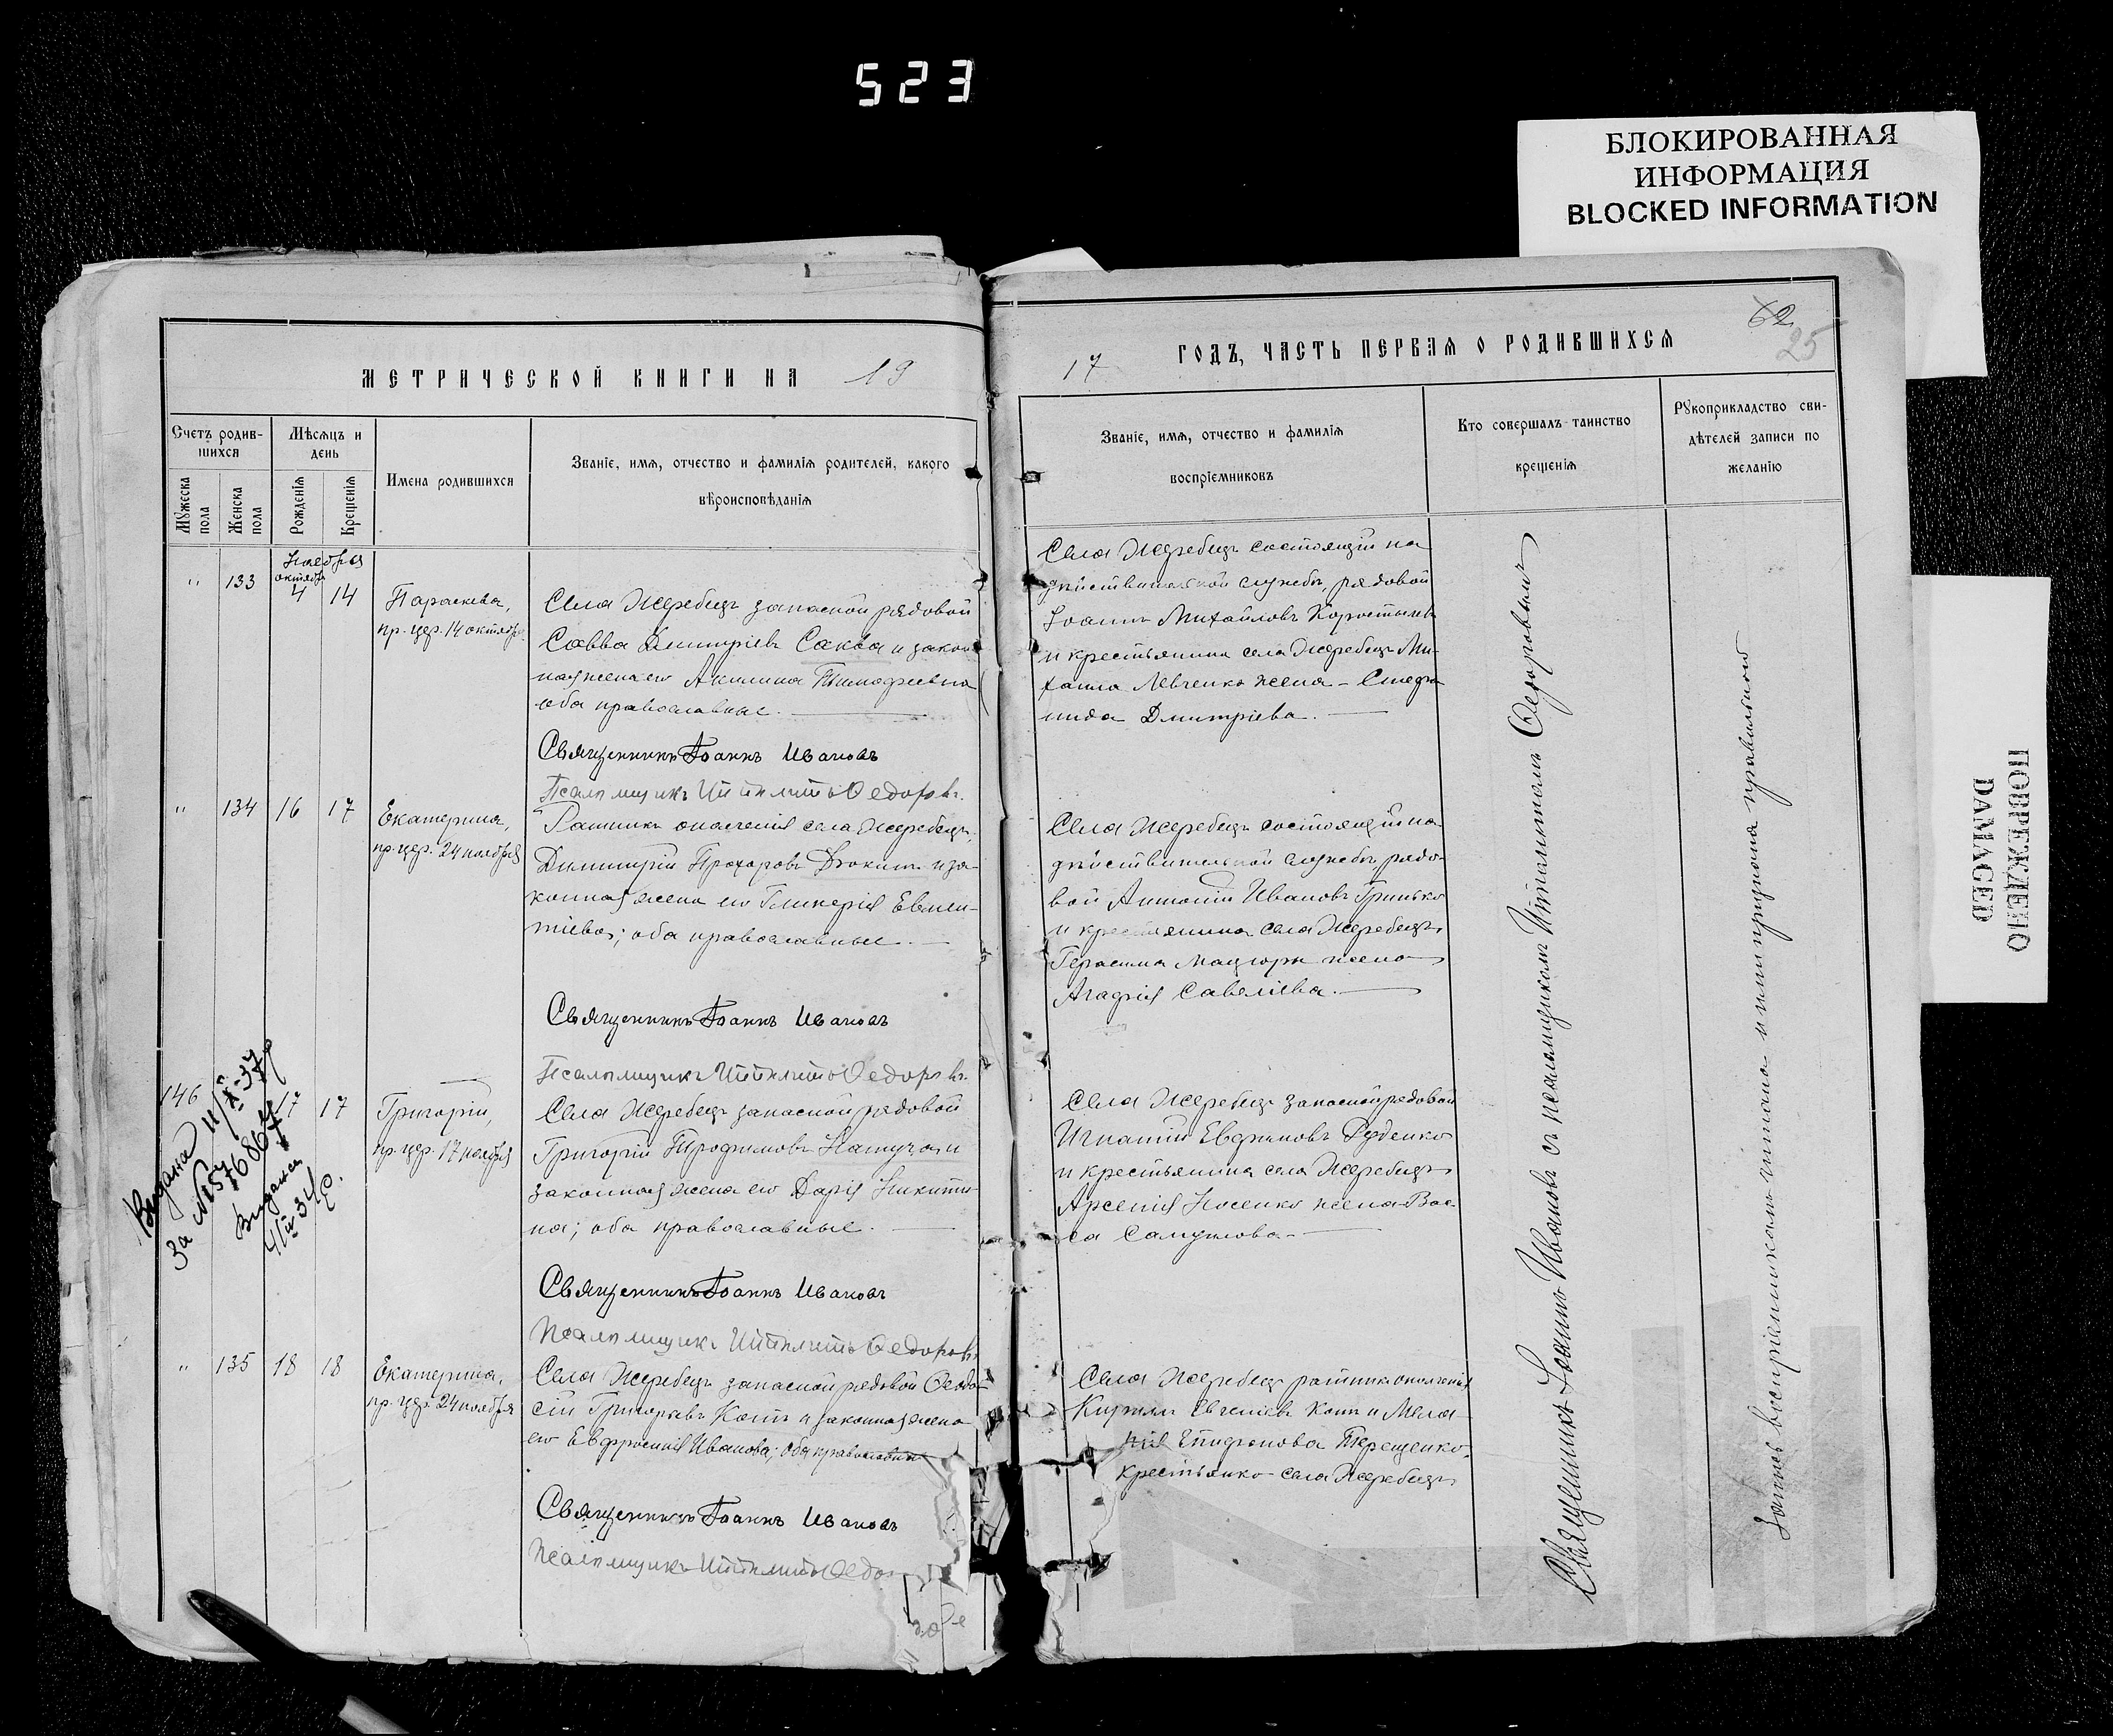 523
БЛОКИРОВАННАЯ
ИНФОРМАЦИЯ
BLOCKED INFORMATION
ПОВРЕЖДЕНО
DAMAGED
МЕТРИЧЕСКОЙ КНИГИ НА 19
Счетъ родив-
шихся
Мужеска
пола
Женска
пола
Мѣсяцъ и
день
Рожденія
Крещенія
Имена родившихся
Званіе, имя, отчество и фамилія родителей, какого
вѣроисповѣданія
Ноября
октября
" 133 4 14
Параскева,
пр. цер. 14 октября
Села Жеребецъ запасной рядовой
Савва Димитріевъ Саква и закон
ная жена его Акилина Тимофеевна
оба православные.
Священникъ Іоаннъ Ивановъ
Псаломщикъ Ипполитъ Федоровъ
" 134 16 17
Екатерина,
пр. цер. 24 ноября
Ратникъ ополченія села Жеребецъ,
Димитрій Прохоровъ и за-
конная жена его Гликерія Евмен-
тіева; оба православные.
Священникъ Іоаннъ Ивановъ
Псаломщикъ Ипполитъ Федоровъ
146 17 17
Григорій,
пр. цер. 17 ноября
Села Жеребецъ запасной рядовой
Григорій Трофимовъ и
законная жена его Дарія Никити-
на; оба православные.
Священникъ Іоаннъ Ивановъ
Псаломщикъ Ипполитъ Федоровъ
Видана
За №
Видана
" 135 18 18
Екатерина,
пр. цер. 24 ноября
Села Жеребецъ запасной рядовой Феодо-
сій Григорьевъ Котъ и законная жена
его Евфросинія Иванова; оба православные
Священникъ Іоаннъ Ивановъ
Псаломщикъ Ипполитъ Федо
17 ГОДЪ, ЧАСТЬ ПЕРВАЯ О РОДИВШИХСЯ
62
25
Званіе, имя, отчество и фамилія
воспріемниковъ
Кто совершалъ таинство
крещенія
Рукоприкладство сви-
дѣтелей записи по
желанію
Села Жеребецъ состоящій на
дѣйствительной службѣ, рядовой
Іоаннъ Михайловъ
и крестьянина села Жеребецъ Ми-
хаила Левченко жена - Стефа
нида Дмитріева.
Села Жеребецъ состоящій на
дѣйствительной службѣ рядо-
вой Антоній Ивановъ Гринько
и крестьянина села Жеребецъ
Герасима Мацюры жена
Агафія Савеліева.
Села Жеребецъ запасной рядовой
Игнатій Евфимовъ Руденко
и крестьянина села Жеребецъ
Арсенія Носенко жена Вас-
са Самуилова.
Села Жеребецъ ратникъ ополченія
Кириллъ Евгеніевъ Котъ и Мела-
нія Епифанова Терещенко
крестьянка села Жеребецъ
Священникъ Іоаннъ Ивановъ съ псаломщикомъ Ипполитомъ Федоровымъ
Запись воспріемникамъ читана и ими признана правильной